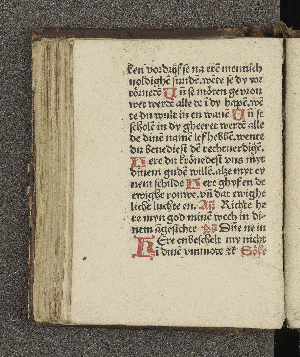 ken vordrijf se na erē mennich
uoldighē sundē. wēte se dy vor
tōrnerē Uñ se mōten gevrou
wet werdē alle de ī dy hapē. wē
te du wult in en wanē Uñ se
scholē in dy gheeret werdē alle
de dinē namē lef hebbē. wente
du benediest dē rechtuerdigē.
Here du krōnedest vns myt
dinem gudē willē. alze myt ey
nem schilde Here ghyf en de
ewighe rouwe. vñ dat ewighe
lichte luchte en. Añ Richte he
re myn god minē wech in di
nem āgesichte Ps Dñe ne in
Here enbeschelt my nicht
ī dinē vnmote